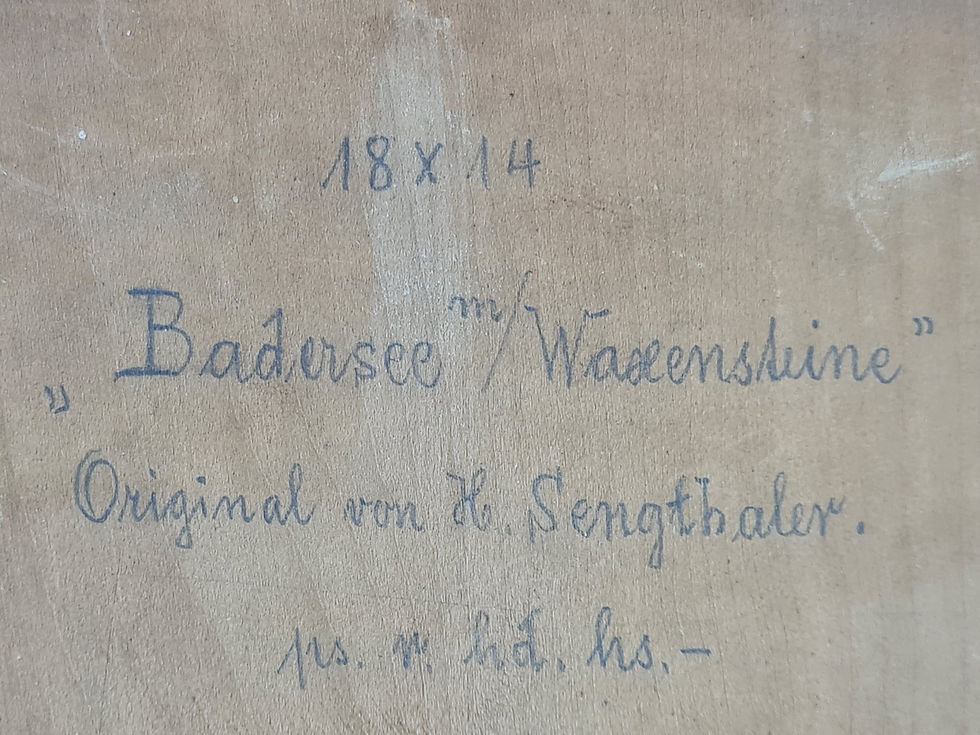 18 x 14
„Badersee m/Waxensteine”
Original von H. Sengthaler.
ps. r. hd. hs.-